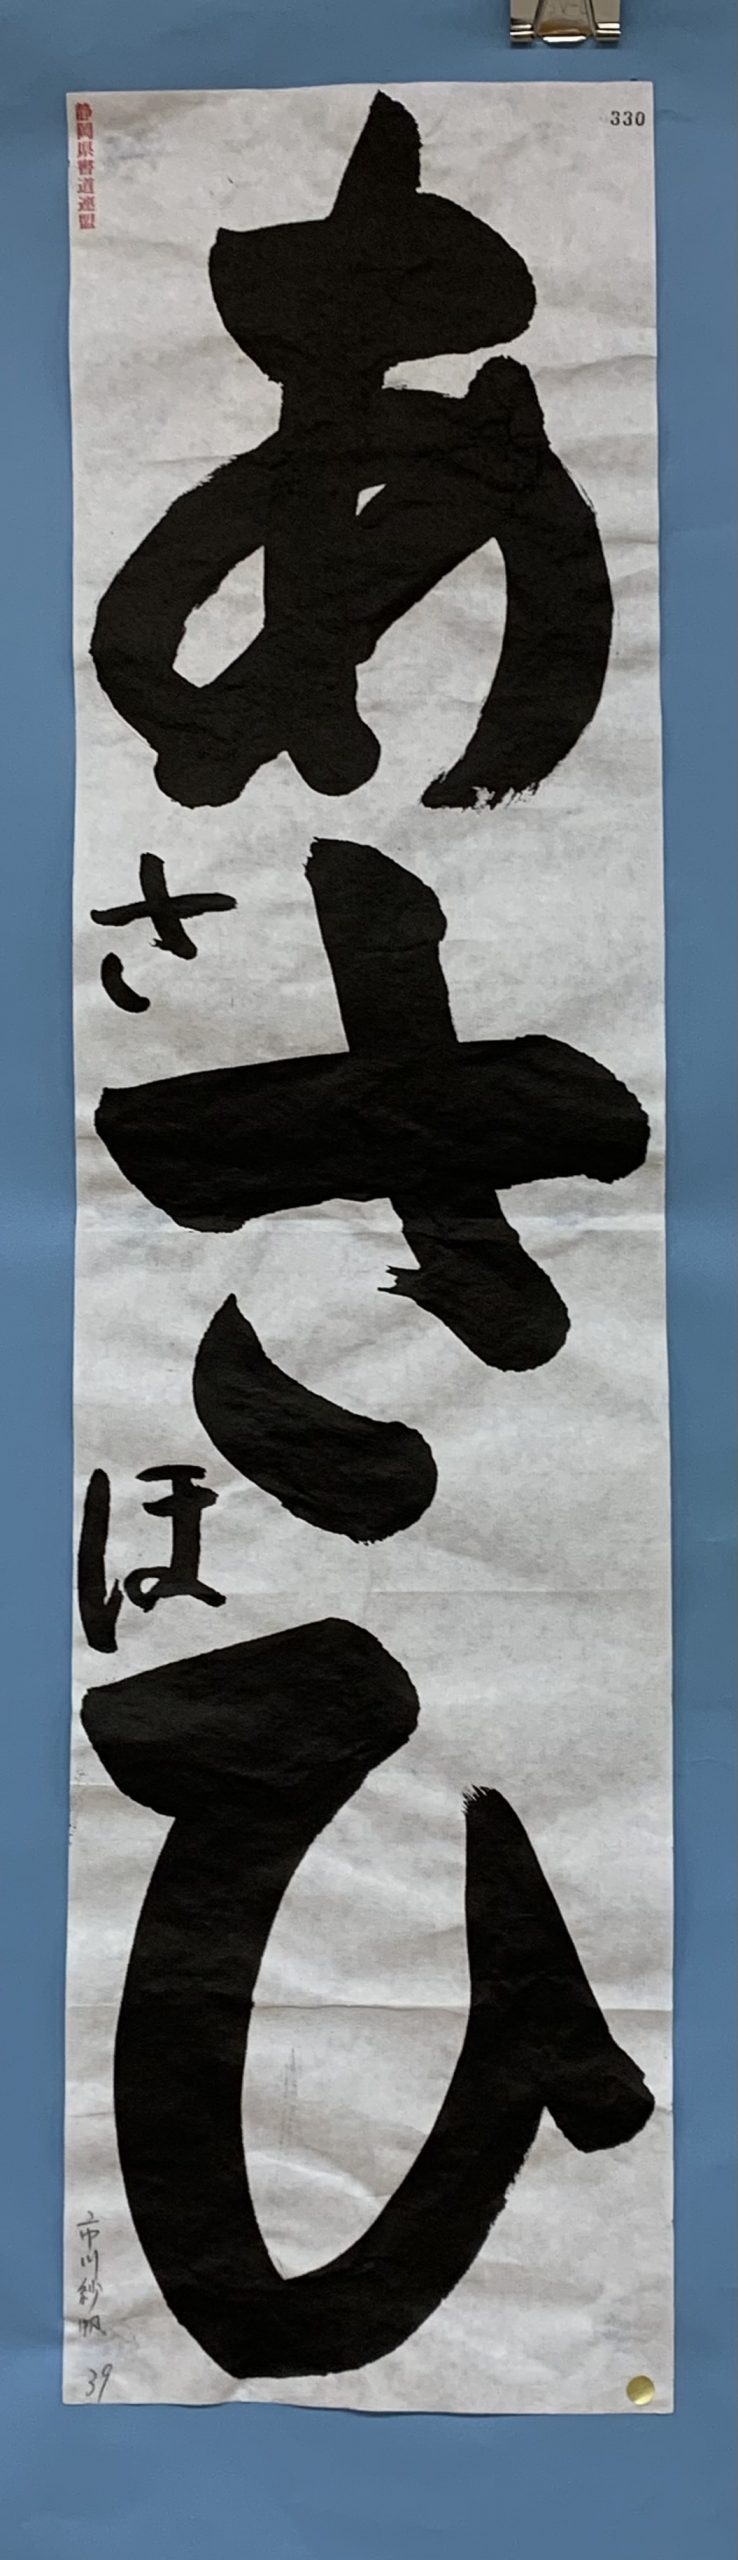 330
あさひ
さほ
静岡県書道連盟
市川紗帆
39